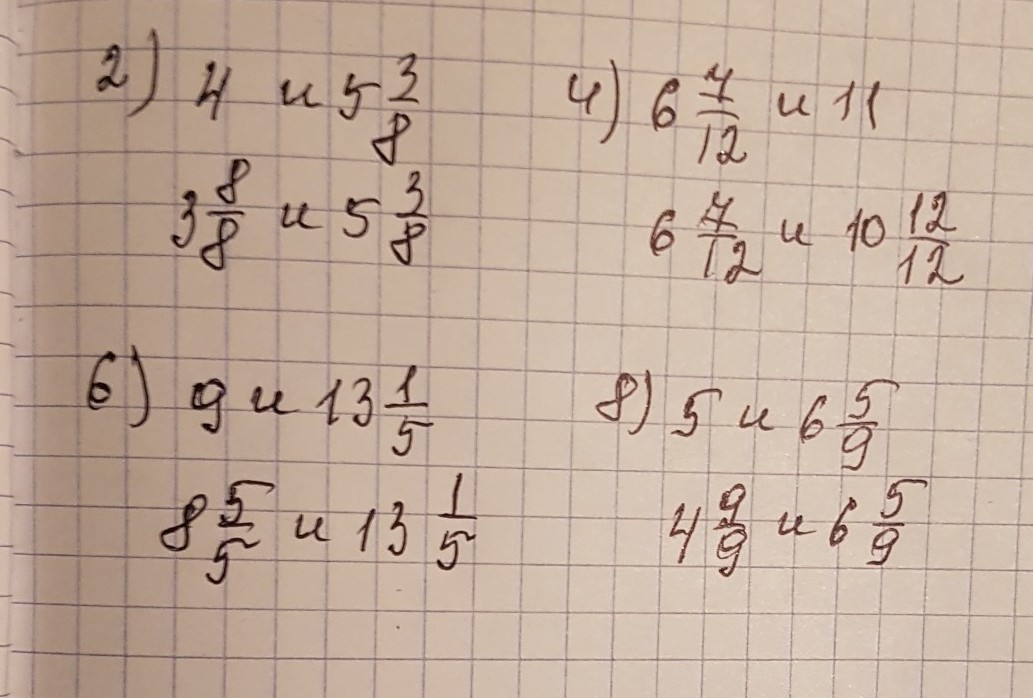 2) 4 и 5 3/8
3 8/8 и 5 3/8
4) 6 7/12 и 11
6 7/12 и 10 12/12
6) 9 и 13 1/5
8 5/5 и 13 1/5
8) 5 и 6 5/9
4 9/9 и 6 5/9